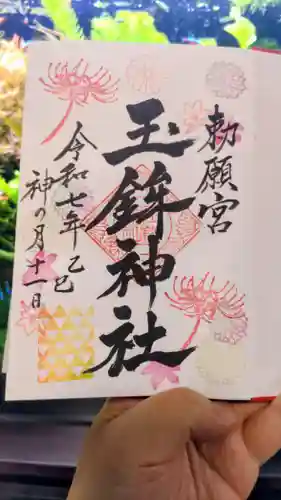 勅願宮
玉鉾神社
令和七年乙巳
神の月十一日